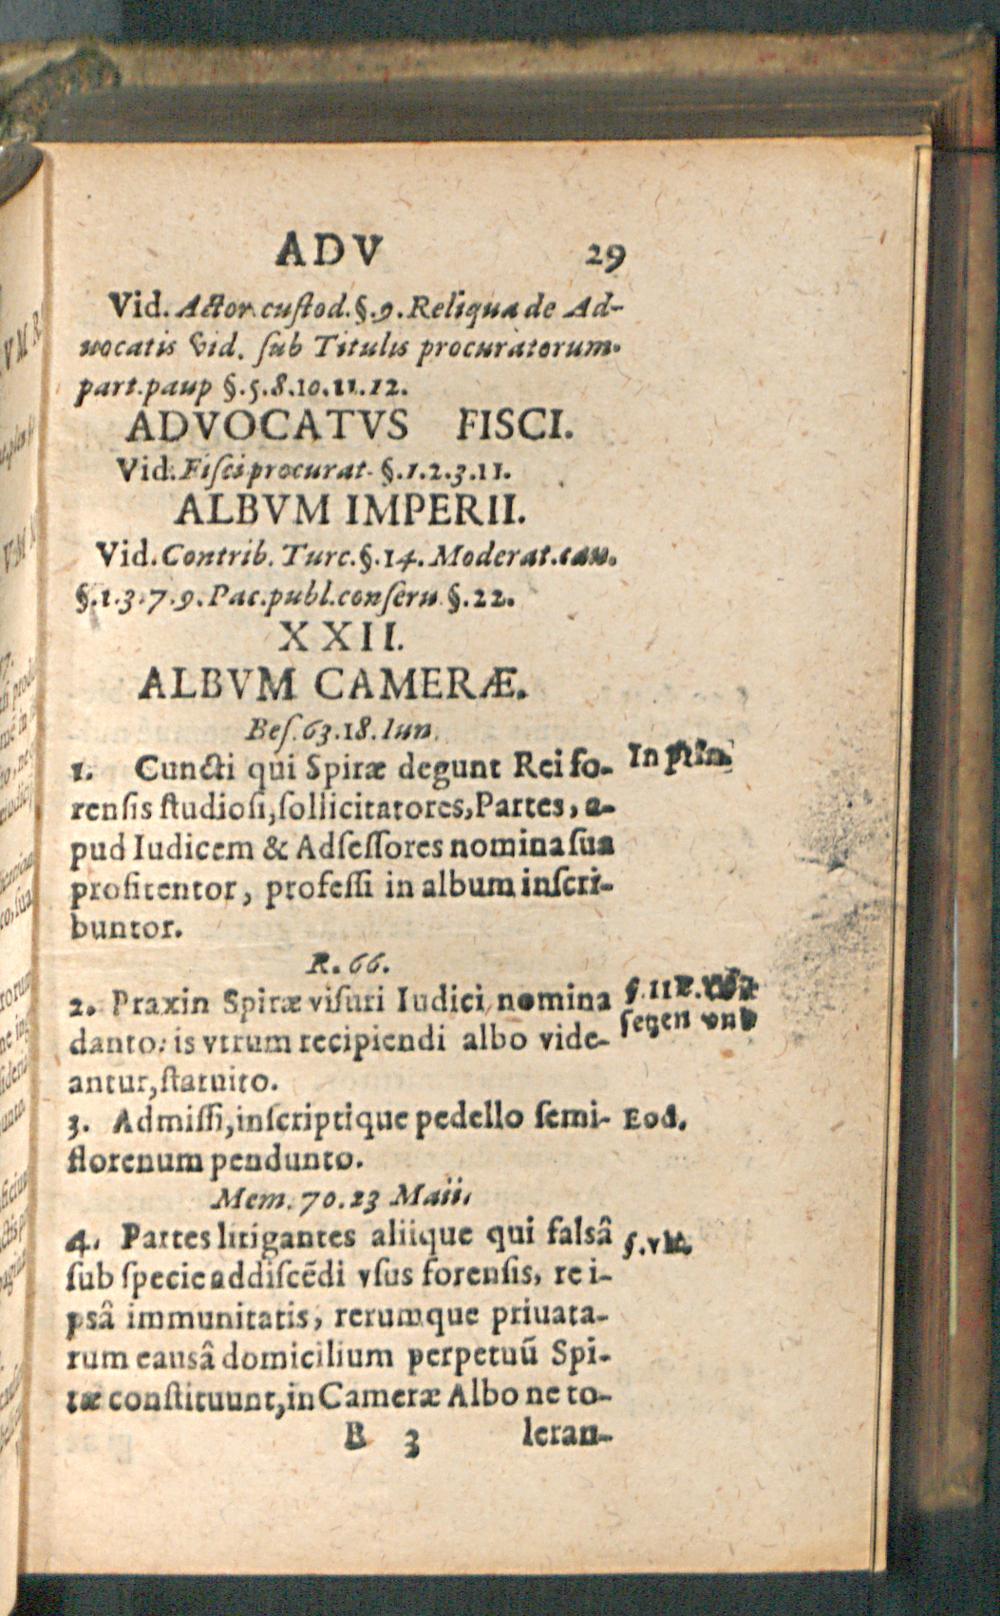 ADV 29
Vid. Actor custod. §. 9. Reliqua de Ad-
uocatis Vid. sub Titulis procuratorum.
part. paup §. 5. 8. 10. 11. 12.
ADVOCATVS FISCI.
Vid. Fisci procurat. §. 1. 2. 3. 11.
ALBVM IMPERII.
Vid. Contrib. Turc. §. 14. Moderat. cau.
§. 1. 3. 7. 9. Pac. publ. conseru §. 22.
XXII.
ALBVM CAMERÆ.
Bes. 63. 18. Iun.
1. Cuncti qui Spiræ degunt Rei fo- In prin.
rensis studiosi, sollicitatores, Partes, a-
pud Iudicem & Adsessores nomina sua
profitentor, professi in album inscri-
buntor.
R. 66.
2. Praxin Spiræ visuri Iudici nomina §. 11
danto: is vtrum recipiendi albo vide- setzen vnd
antur, statuito.
3. Admissi, inscriptique pedello semi- Eod.
florenum pendunto.
Mem. 70. 23 Maii.
4. Partes litigantes aliique qui falsâ §. vlt.
sub specie addiscēdi vsus forensis, re i-
psâ immunitatis, rerumque priuata-
rum causâ domicilium perpetuũ Spi-
ræ constituunt, in Cameræ Albo ne to-
B 3 leran-